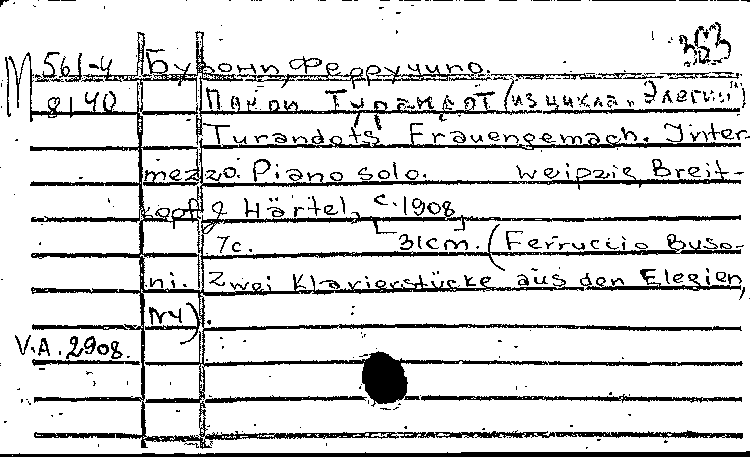 М 561-4 Бузони, Ферруччио.
8140 Покои Турандот (из цикла „Элегии“)
Turandots Frauengemach. Inter-
mezzo. Piano solo. Leipzig, Breit-
kopf & Härtel, c. 1908
7с. 31cm. (Ferruccio Buso-
ni. Zwei Klavierstücke aus den Elegien,
N4).
V.A. 2908.